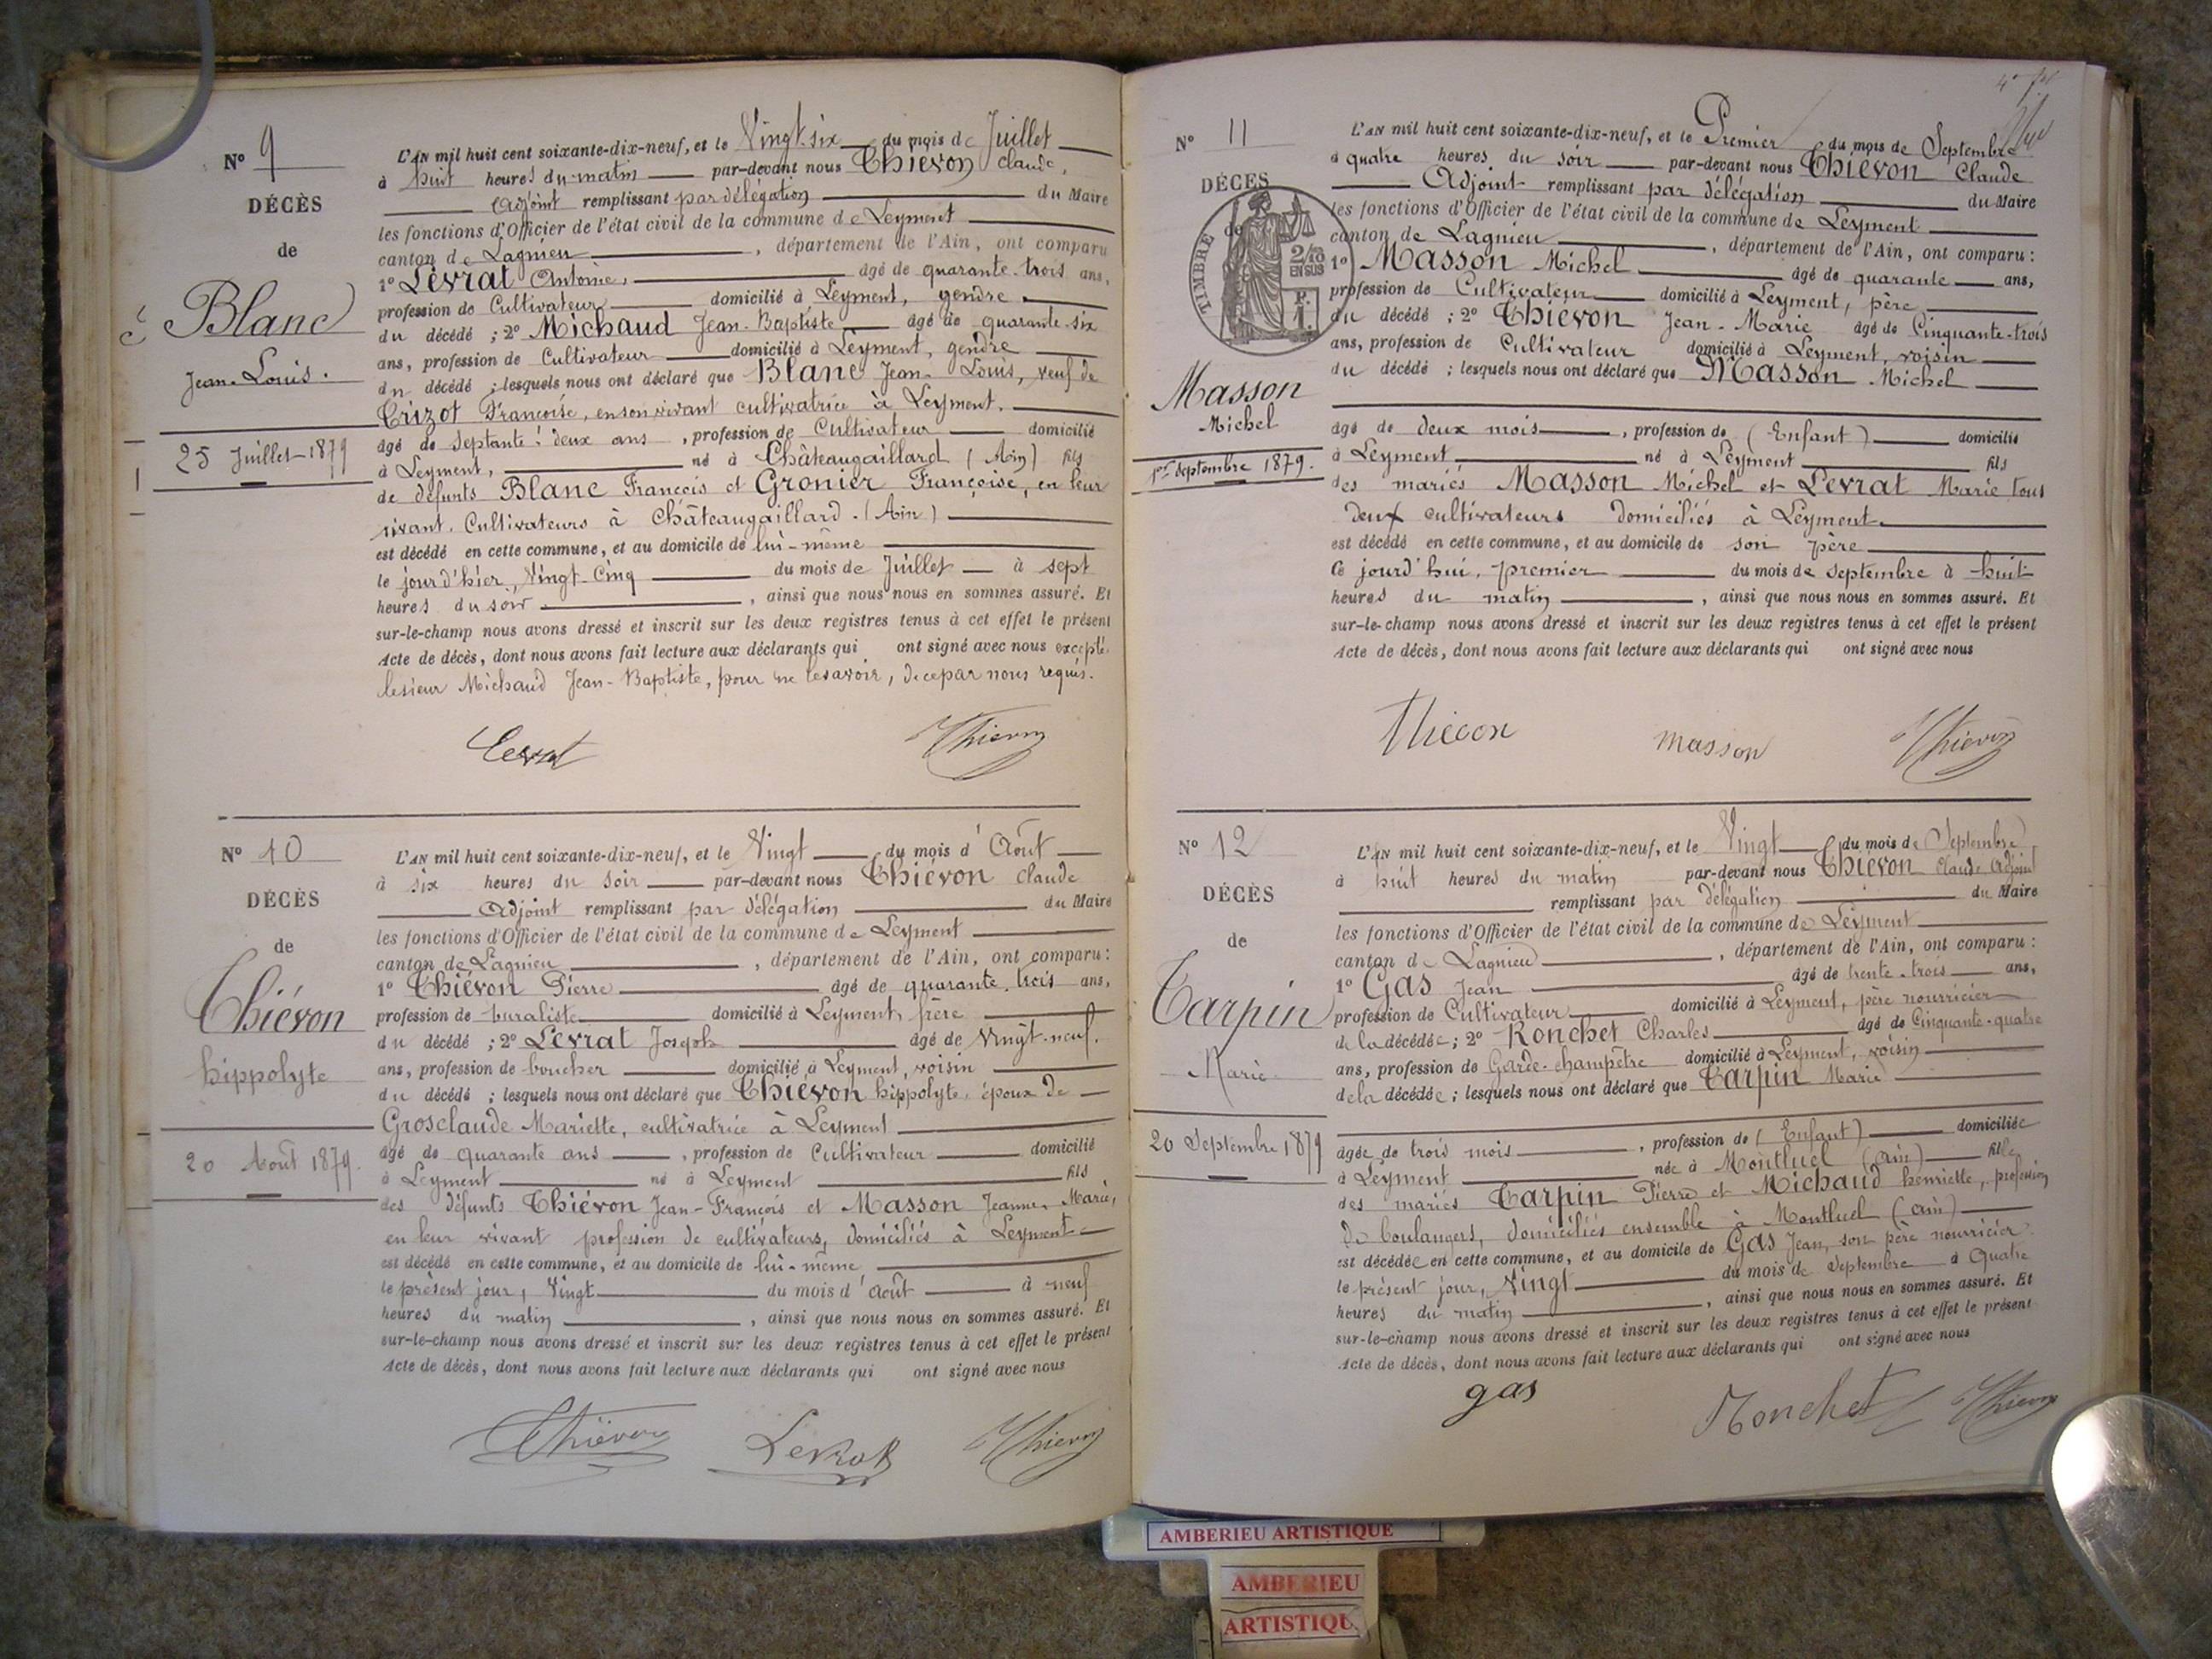 N° 9
DÉCÈS
de
Blanc
Jean-Louis.
25 Juillet 1879
L'AN mil huit cent soixante-dix-neuf, et le Vingt-six du mois de Juillet
à huit heures du matin par-devant nous Thiévon Claude,
Adjoint remplissant par délégation du Maire
les fonctions d'Officier de l'état civil de la commune de Leyment
canton de Lagnieu, département de l'Ain, ont comparu
1° Levrat Antoine, âgé de quarante-trois ans,
profession de Cultivateur domicilié à Leyment, gendre
du décédé ; 2° Michaud Jean-Baptiste âgé de quarante-six
ans, profession de Cultivateur domicilié à Leyment, gendre
du décédé ; lesquels nous ont déclaré que Blanc Jean-Louis, veuf de
Crizot Françoise, en son vivant cultivatrice à Leyment.
âgé de septante-deux ans, profession de Cultivateur domicilié
à Leyment, né à Châteaugaillard (Ain) fils
de défunts Blanc François et Gronier Françoise, en leur
vivant Cultivateurs à Châteaugaillard. (Ain)
est décédé en cette commune, et au domicile de lui-même
le jour d'hier, Vingt-Cinq du mois de Juillet à sept
heures du soir, ainsi que nous nous en sommes assuré. Et
sur-le-champ nous avons dressé et inscrit sur les deux registres tenus à cet effet le présent
Acte de décès, dont nous avons fait lecture aux déclarants qui ont signé avec nous excepté
le sieur Michaud Jean-Baptiste, pour ne le savoir, de ce par nous requis.
Levrat Thievon
N° 10
DÉCÈS
de
Thiévon
hippolyte
20 Août 1879.
L'AN mil huit cent soixante-dix-neuf, et le Vingt du mois d'Août
à six heures du soir par-devant nous Thiévon Claude
Adjoint remplissant par délégation du Maire
les fonctions d'Officier de l'état civil de la commune de Leyment
canton de Lagnieu, département de l'Ain, ont comparu :
1° Thiévon Pierre âgé de quarante-trois ans,
profession de buraliste domicilié à Leyment, frère
du décédé ; 2° Levrat Joseph âgé de Vingt-neuf.
ans, profession de boucher domicilié à Leyment, voisin
du décédé ; lesquels nous ont déclaré que Thiévon hippolyte, époux de
Grosclaude Mariette, cultivatrice à Leyment
âgé de quarante ans, profession de Cultivateur domicilié
à Leyment né à Leyment fils
des défunts Thiévon Jean-François et Masson Jeanne-Marie,
en leur vivant profession de cultivateurs, domiciliés à Leyment
est décédé en cette commune, et au domicile de lui-même
le présent jour, Vingt du mois d'août à neuf
heures du matin, ainsi que nous nous en sommes assuré. Et
sur-le-champ nous avons dressé et inscrit sur les deux registres tenus à cet effet le présent
Acte de décès, dont nous avons fait lecture aux déclarants qui ont signé avec nous
Thiévon Levrat Thievon
N° 11
DÉCÈS
de
TIMBRE
2/10
EN SUS
F.
1.
Masson
Michel
1er Septembre 1879.
L'AN mil huit cent soixante-dix-neuf, et le Premier du mois de Septembre
à quatre heures du soir par-devant nous Thiévon Claude
Adjoint remplissant par délégation du Maire
les fonctions d'Officier de l'état civil de la commune de Leyment
canton de Lagnieu, département de l'Ain, ont comparu :
1° Masson Michel âgé de quarante ans,
profession de Cultivateur domicilié à Leyment, père
du décédé ; 2° Thiévon Jean-Marie âgé de Cinquante-trois
ans, profession de Cultivateur domicilié à Leyment, voisin
du décédé ; lesquels nous ont déclaré que Masson Michel
âgé de deux mois, profession de (Enfant) domicilié
à Leyment né à Leyment fils
des mariés Masson Michel et Levrat Marie tous
deux cultivateurs domiciliés à Leyment.
est décédé en cette commune, et au domicile de son père
Ce jourd'hui, premier du mois de septembre à huit
heures du matin, ainsi que nous nous en sommes assuré. Et
sur-le-champ nous avons dressé et inscrit sur les deux registres tenus à cet effet le présent
Acte de décès, dont nous avons fait lecture aux déclarants qui ont signé avec nous
Thievon masson Thievon
N° 12
DÉCÈS
de
Tarpin
Marie
20 Septembre 1879
L'AN mil huit cent soixante-dix-neuf, et le Vingt du mois de Septembre
à huit heures du matin par-devant nous Thiévon Claude Adjoint
remplissant par délégation du Maire
les fonctions d'Officier de l'état civil de la commune de Leyment
canton de Lagnieu, département de l'Ain, ont comparu :
1° Gas Jean âgé de trente-trois ans,
profession de Cultivateur domicilié à Leyment, père nourricier
de la décédée ; 2° Ronchet Charles âgé de Cinquante-quatre
ans, profession de Garde-champêtre domicilié à Leyment, voisin
de la décédée ; lesquels nous ont déclaré que Tarpin Marie
âgée de trois mois, profession de (Enfant) domiciliée
à Leyment née à Montluel (ain) fille
des mariés Tarpin Pierre et Michaud henriette, profession
de boulangers, domiciliés ensemble à Montluel (ain)
est décédée en cette commune, et au domicile de Gas Jean, son père nourricier
le présent jour, Vingt du mois de Septembre à Quatre
heures du matin, ainsi que nous nous en sommes assuré. Et
sur-le-champ nous avons dressé et inscrit sur les deux registres tenus à cet effet le présent
Acte de décès, dont nous avons fait lecture aux déclarants qui ont signé avec nous
gas Ronchet Thievon
AMBERIEU ARTISTIQUE
AMBERIEU
ARTISTIQU